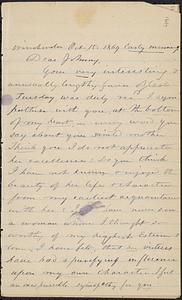 Winchester Oct. 15. 1869 Early morning
Dear Johnny,
Your very interesting &
unusually lengthy favor of last
Tuesday was duly rec'd. I sym
pathize with you, at the bottom
of my heart, in every word you
say about your mother
think you I do not appreciate
her excellence? Do you think
I have not known & enjoyed the
beauty of her life & character
from my earliest acquaintance
with her? I have never seen
a woman whom I thought more
worthy of my highest esteem &
love. I have felt, that her virtues
have had a purifying influence
upon my own character. I feel
an inexpressible sympathy for you